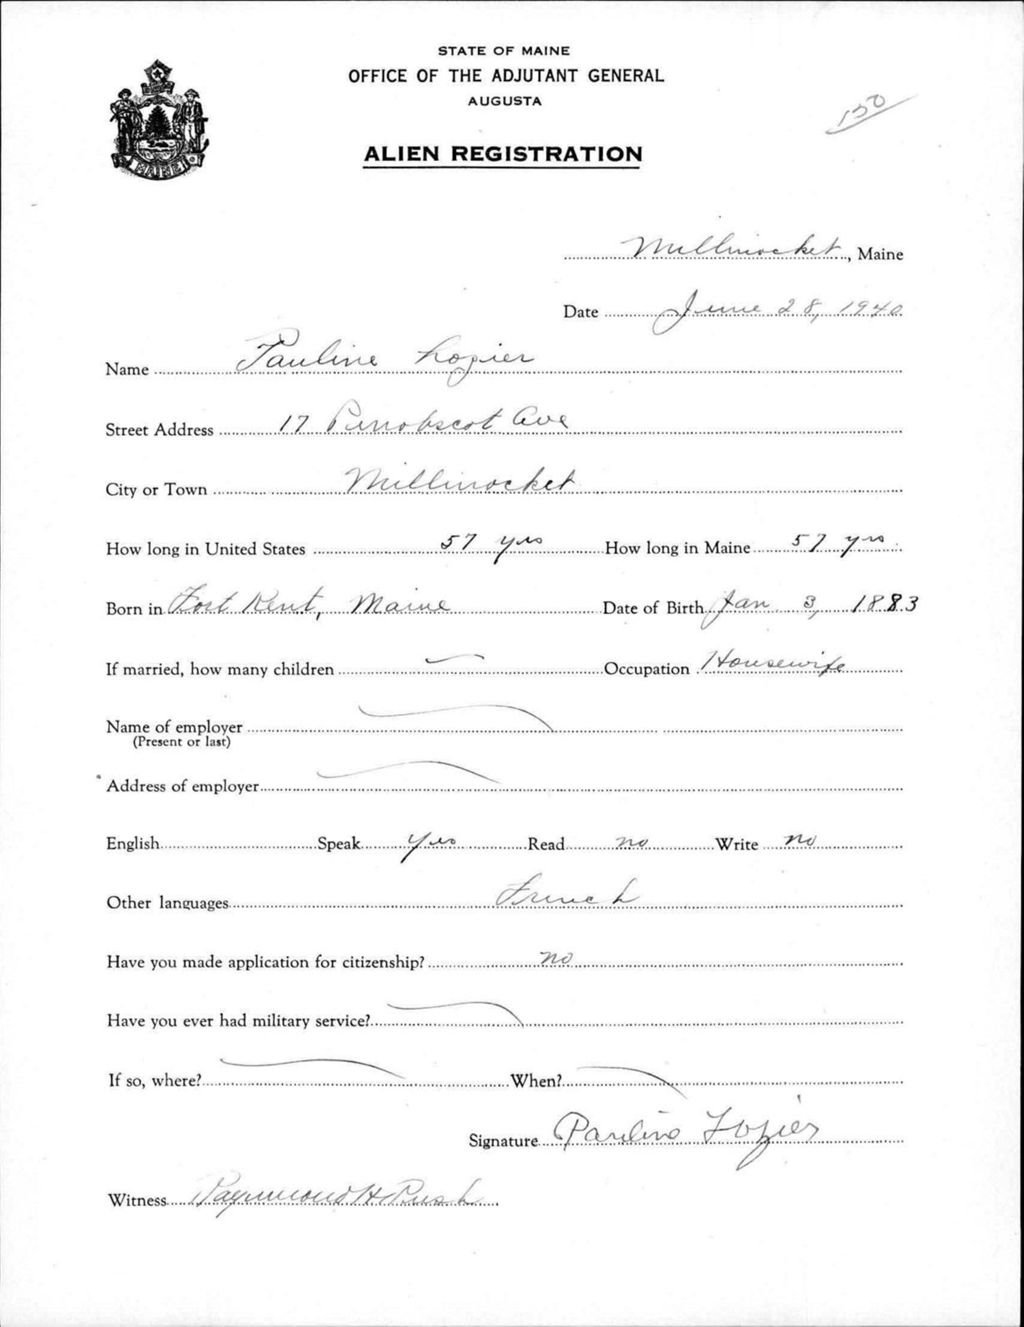 STATE OF MAINE
OFFICE OF THE ADJUTANT GENERAL
AUGUSTA
130
ALIEN REGISTRATION
Millinocket, Maine
Date June 28, 1940
Name Pauline Lozier
Street Address 17 Pennobscot Ave
City or Town Millinocket
How long in United States 57 yrs How long in Maine 57 yrs
Born in Fort Kent, Maine Date of Birth Jan 3, 1883
If married, how many children — Occupation Housewife
Name of employer
(Present or last)
Address of employer
English Speak Yes Read no Write no
Other languages French
Have you made application for citizenship? no
Have you ever had military service?
If so, where? When?
Signature Pauline Lozier
Witness Raymond H Rush
MAINE